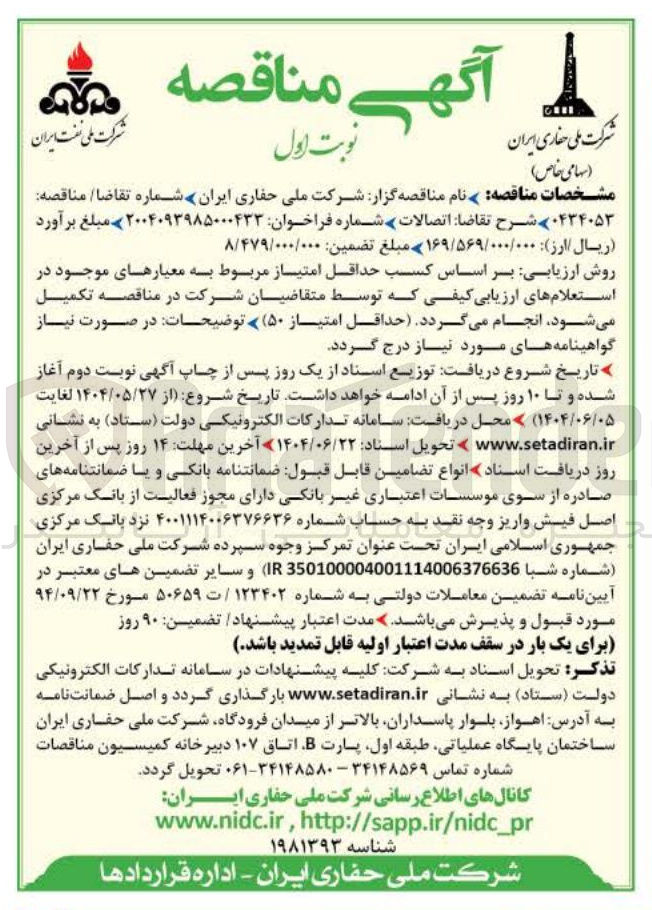 آگهی مناقصه
نوبت اول
شرکت ملی حفاری ایران
(سهامی خاص)
شرکت ملی نفت ایران
مشخصات مناقصه: نام مناقصه‌گزار: شرکت ملی حفاری ایران شماره تقاضا/ مناقصه:
۰۴۳۴۰۵۳ شرح تقاضا: اتصالات شماره فراخوان: ۲۰۰۴۰۹۳۹۸۵۰۰۰۴۳۳ مبلغ برآورد
(ریال/ارز): ۱۶۹/۵۶۹/۰۰۰/۰۰۰ مبلغ تضمین: ۸/۴۷۹/۰۰۰/۰۰۰
روش ارزیابی: بر اساس کسب حداقل امتیاز مربوط به معیارهای موجود در
استعلام‌های ارزیابی‌کیفی که توسط متقاضیان شرکت در مناقصه تکمیل
می‌شود، انجام می‌گردد. (حداقل امتیاز ۵۰) توضیحات: در صورت نیاز
گواهینامه‌های مورد نیاز درج گردد.
تاریخ شروع دریافت: توزیع اسناد از یک روز پس از چاپ آگهی نوبت دوم آغاز
شده و تا ۱۰ روز پس از آن ادامه خواهد داشت. تاریخ شروع: (از ۱۴۰۴/۰۵/۲۷ لغایت
۱۴۰۴/۰۶/۰۵) محل دریافت: سامانه تدارکات الکترونیکی دولت (ستاد) به نشانی
www.setadiran.ir تحویل اسناد: ۱۴۰۴/۰۶/۲۲ آخرین مهلت: ۱۴ روز پس از آخرین
روز دریافت اسناد انواع تضامین قابل قبول: ضمانتنامه بانکی و یا ضمانتنامه‌های
صادره از سوی موسسات اعتباری غیر بانکی دارای مجوز فعالیت از بانک مرکزی
اصل فیش واریز وجه نقد به حساب شماره ۴۰۰۱۱۱۴۰۰۶۳۷۶۶۳۶ نزد بانک مرکزی
جمهوری اسلامی ایران تحت عنوان تمرکز وجوه سپرده شرکت ملی حفاری ایران
(شماره شبا IR 350100004001114006376636) و سایر تضمین های معتبر در
آیین‌نامه تضمین معاملات دولتی به شماره ۱۲۳۴۰۲ /ت ۵۰۶۵۹ مورخ ۹۴/۰۹/۲۲
مورد قبول و پذیرش می‌باشد. مدت اعتبار پیشنهاد/ تضمین: ۹۰ روز
(برای یک بار در سقف مدت اعتبار اولیه قابل تمدید باشد.)
تذکر: تحویل اسناد به شرکت: کلیه پیشنهادات در سامانه تدارکات الکترونیکی
دولت (ستاد) به نشانی www.setadiran.ir بارگذاری گردد و اصل ضمانت‌نامه
به آدرس: اهواز، بلوار پاسداران، بالاتر از میدان فرودگاه، شرکت ملی حفاری ایران
ساختمان پایگاه عملیاتی، طبقه اول، پارت B، اتاق ۱۰۷ دبیرخانه کمیسیون مناقصات
شماره تماس ۳۴۱۴۸۵۶۹ – ۳۴۱۴۸۵۸۰-۰۶۱ تحویل گردد.
کانال‌های اطلاع‌رسانی شرکت ملی حفاری ایران:
www.nidc.ir , http://sapp.ir/nidc_pr
شناسه ۱۹۸۱۳۹۳
شرکت ملی حفاری ایران - اداره قراردادها